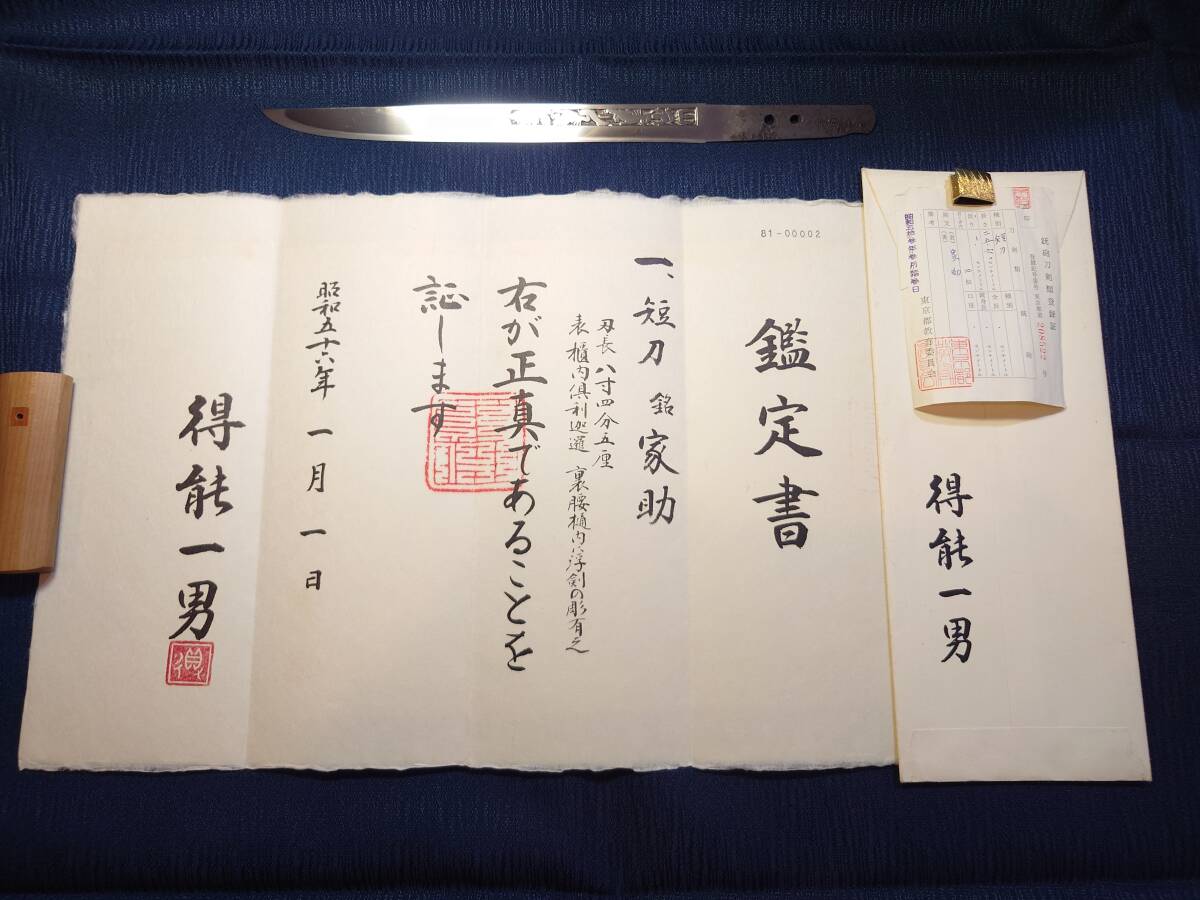 81-00002
鑑定書
一、短刀 銘 家助
刃長 八寸四分五厘
表 櫃内倶利迦邏 裏腰樋内ニ浮剣の彫有之
右が正真であることを
証します
昭和五十六年 一月 一日
得能一男
得能一男
銃砲刀剣類登録証
東京都教育委員会